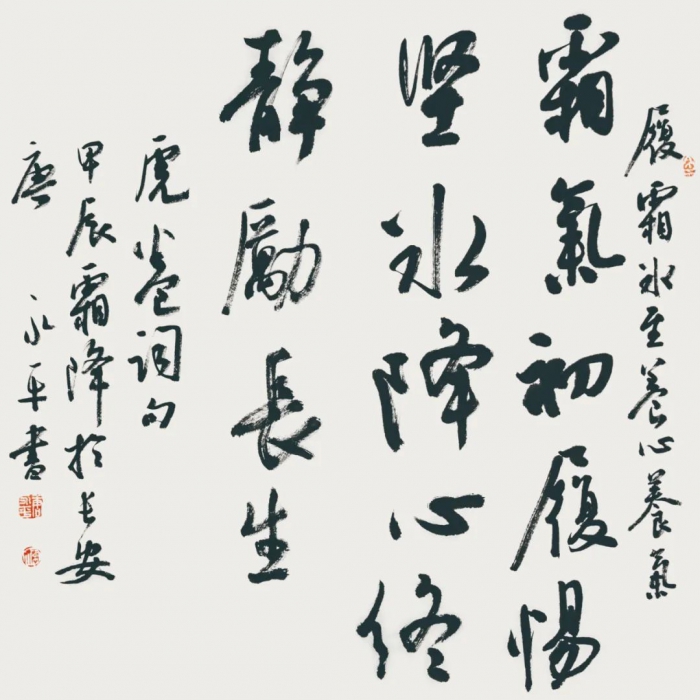 履霜冰至養心養氣
霜氣初履惕
坚冰降心终
静勵長生
虎詞句
甲辰霜降於长安
唐永平書